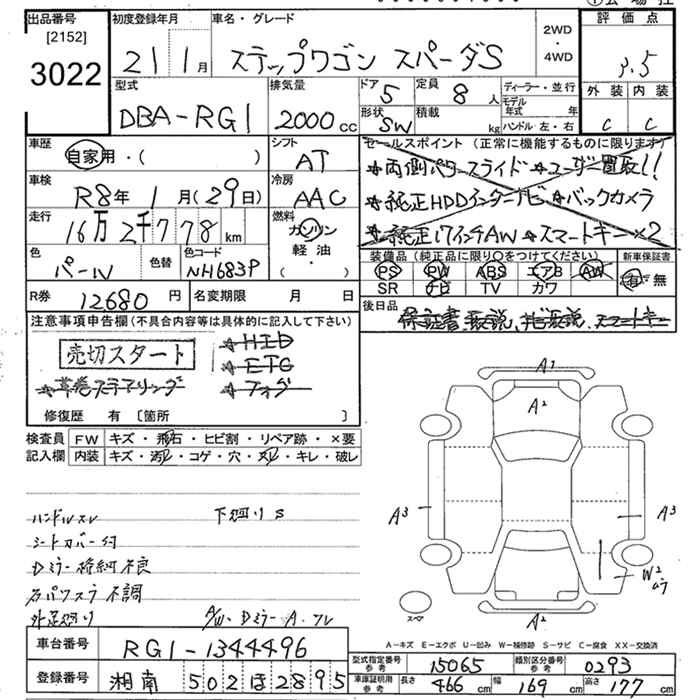 出品番号 初度登録年月 車名・グレード 評価点
[2152]
3022
21 1月 ステップワゴン スパーダS 2WD・4WD 3.5
型式 排気量 ドア 定員 ディーラー・並行 外装 内装
DBA-RG1 2000cc 5 8人 モデル年式 年
形状 積載 ハンドル 左・右
SW kg C C
車歴 シフト セールスポイント(正常に機能するものに限ります)
自家用・( ) AT ☆両側パワースライド ☆ユーザー買取!!
車検 冷房
R8年 1月(29日) AAC ☆純正HDDインターナビ ☆バックカメラ
走行 燃料
16万2千778km ガソリン ☆純正17インチAW ☆スマートキー×2
軽油
・( )
色 色替 色コード 装備品(純正品に限り○をつけてください) 新車保証書
パール NH683P PS PW ABS エアB AW 有・無
SR ナビ TV カワ
R券 12680円 名変期限 月 日 後日品
保証書、取説、ナビ取説、スマートキー
注意事項申告欄(不具合内容等は具体的に記入して下さい)
売切スタート ☆HID
☆ETC
☆革巻ステアリング ☆フォグ
修復歴 有〔箇所 〕
検査員 FW キズ・飛石・ヒビ割・リペア跡・×要
記入欄 内装 キズ・汚レ・コゲ・穴・スレ・キレ・破レ
ハンドルスレ 下廻りS
シートカバー付
Dミラー格納不良
右パワスラ不調
外足廻り A/W・DミラーA・スレ
A1
A2
A3 A3
W2
スペア
A2
A-キズ E-エクボ U-凹み W-補修跡 S-サビ C-腐食 XX-交換済
車台番号 RG1-1344496
型式指定番号 参考 15065 類別区分番号 参考 0293
登録番号 湘南 502 ほ 2895
車庫証明用 参考 長さ 466cm 幅 169cm 高さ 177cm